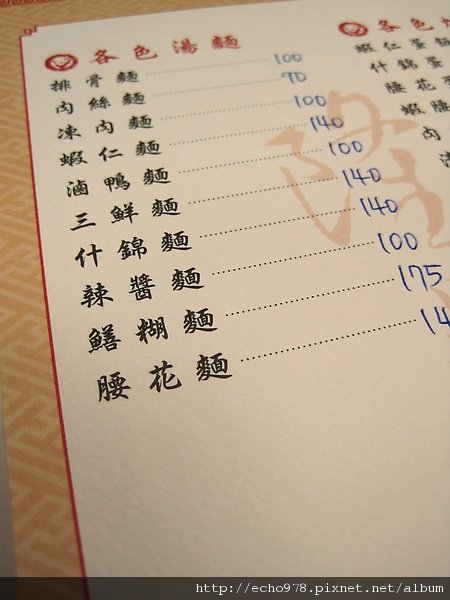 各色湯麵
排骨麵 100
肉絲麵 90
凍肉麵 100
蝦仁麵 140
滷鴨麵 100
三鮮麵 140
什錦麵 140
辣醬麵 100
鱔糊麵 175
腰花麵 14
各色
蝦仁蛋
什錦蛋
腰花
蝦腰
肉
隆
http://echo978.pixnet.net/album